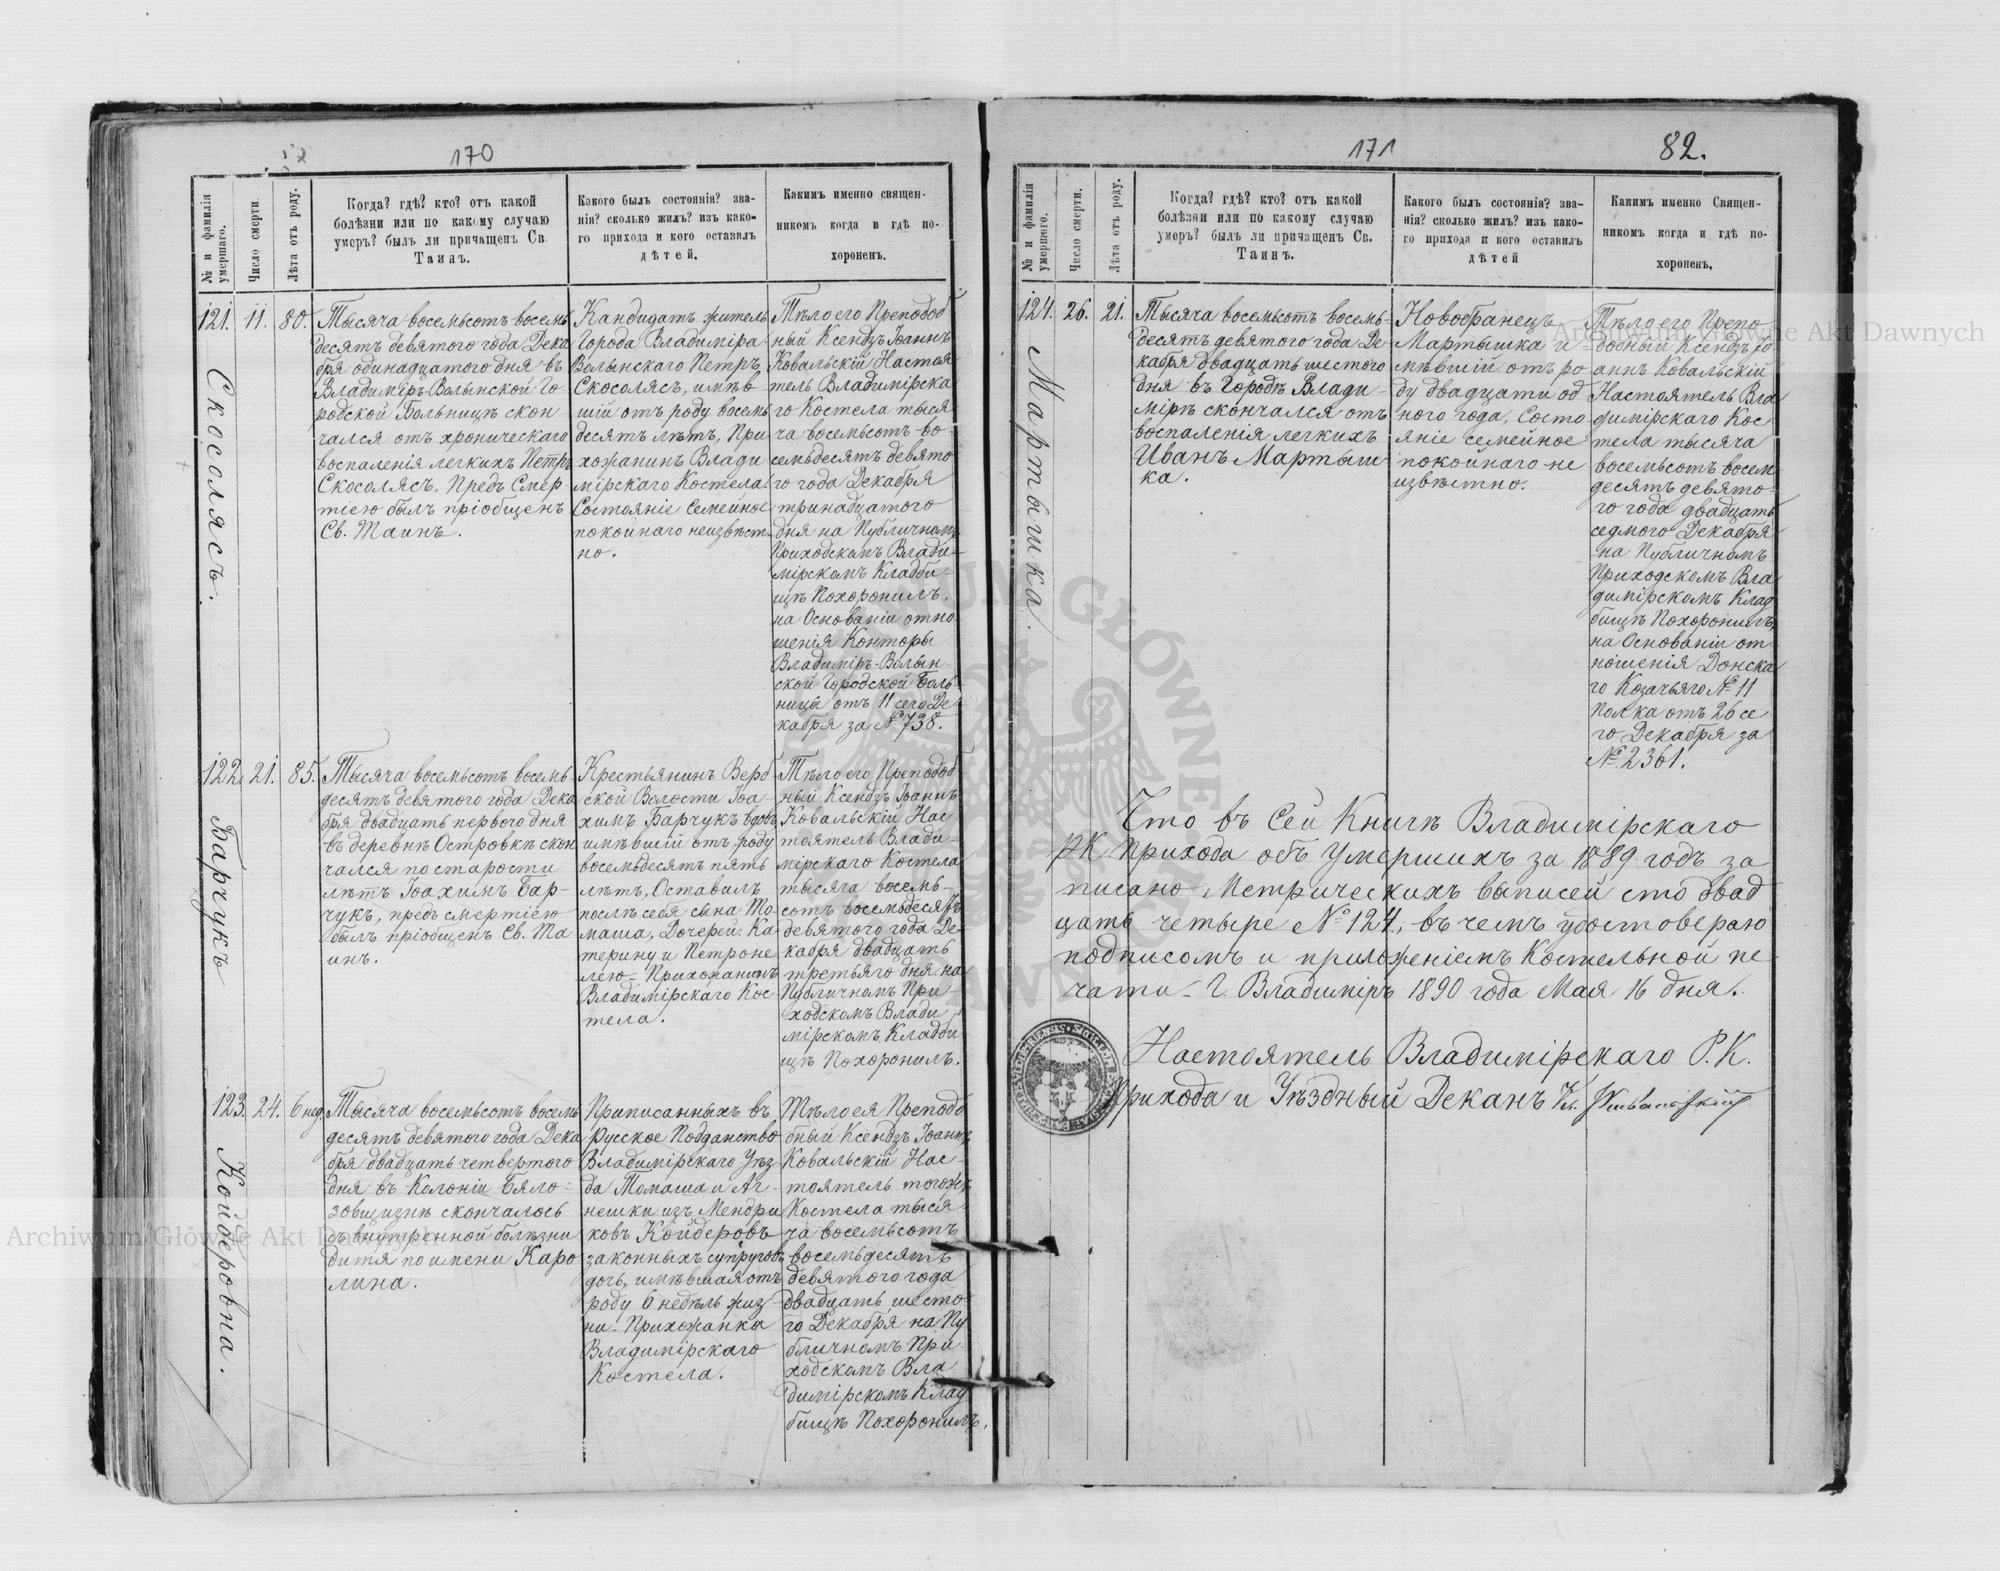 170
№ и фамилія умершаго.
Число смерти.
Лѣта отъ роду.
Когда? гдѣ? кто? отъ какой
болѣзни или по какому случаю
умеръ? былъ ли причащенъ Св.
Таинъ.
Какого былъ состоянія? зва-
нія? сколько жилъ? изъ како-
го прихода и кого оставилъ
дѣтей.
Каким именно священ-
никомъ когда и гдѣ по-
хороненъ.
121.
Скосолясъ.
11.
80.
Тысяча восемьсотъ восемь
десятъ девятого года Дека
бря одинадцатого дня въ
Владиміръ-Волынской Го-
родской Больницѣ скон
чался отъ хроническаго
воспаленія легкихъ Петръ
Скосолясъ, Предъ Смер-
тію былъ пріобщенъ
Св. Таинъ.
Кандидатъ житель
Города Владиміра-
Волынскаго Петръ
Скосолясъ, имѣв
шій отъ роду восемь
десятъ лѣтъ, При
хожанинъ Влади
мірскаго Костела.
Состояніе Семейное
покойнаго неизвѣст
но.
Тѣло его Преподоб
ный Ксендзъ Іоаннъ
Ковальскій Настоя
тель Владимірска
го Костела тыся
ча восемьсотъ во-
семьдесятъ девято
го года Декабря
тринадцатого
дня на Публичномъ
Приходскомъ Влади-
мірскомъ Кладби-
щѣ Похоронилъ,
на Основаніи отно
шенія Конторы
Владиміръ-Волын-
ской Городской Боль-
ницы отъ 11 сего Де-
кабря за № 738.
122.
Барчукъ
21.
85.
Тысяча восемьсотъ восемь-
десятъ девятого года Дека
бря двадцать первого дня
въ деревнѣ Островкѣ скон
чался по старости
лѣтъ Іоахимъ Бар-
чукъ, предъ смертію
былъ пріобщенъ Св. Та
инъ.
Крестьянинъ Верб-
ской Волости Іоа-
химъ Барчукъ вдовъ
имѣвшій отъ роду
восемьдесятъ пять
лѣтъ, Оставилъ
послѣ себя сына То-
маша, Дочерей: Ка-
терину и Петроне
лею - Прихожанинъ
Владимірскаго Кос-
тела.
Тѣло его Преподоб
ный Ксендзъ Іоаннъ
Ковальскій Нас
тоятель Влади-
мірскаго Костела
тысяча восемь-
сотъ восемьдесятъ
девятого года Де-
кабря двадцать
третьяго дня на
Публичномъ При-
ходскомъ Влади
мірскомъ Кладби
щѣ Похоронилъ.
123.
Койдеровна.
24.
6 нед.
Тысяча восемьсотъ восемь
десятъ девятого года Дека
бря двадцать четвертого
дня въ Колоніи Бяло-
зовщизнѣ скончалось
съ внутренной болѣзни
дитя по имени Каро
лина.
Приписанныхъ въ
Русское Подданство
Владимірскаго Уѣз
да Томаша и Аг-
нешки изъ Мендри
ковъ Койдеровъ
законныхъ супруговъ
дочь, имѣвшая отъ
роду 6 недѣль жиз-
ни - Прихожанка
Владимірскаго
Костела.
Тѣло ея Преподо
бный Ксендзъ Іоаннъ
Ковальскій Нас-
тоятель тогожъ
Костела тыся-
ча восемьсотъ
восемьдесятъ
девятого года
двадцать шесто-
го Декабря на Пу
бличномъ При
ходскомъ Вла
димірскомъ Клад
бищѣ Похоронилъ.
171
82.
№ и фамилія умершаго.
Число смерти.
Лѣта отъ роду.
Когда? гдѣ? кто? отъ какой
болѣзни или по какому случаю
умеръ? былъ ли причащенъ Св.
Таинъ.
Какого былъ состоянія? зва-
нія? сколько жилъ? изъ како-
го прихода и кого оставилъ
дѣтей
Какимъ именно Священ-
никомъ когда и гдѣ по-
хороненъ.
124.
Мартышка.
26.
21.
Тысяча восемьсотъ восемь-
десятъ девятого года Де-
кабря двадцать шестого
дня въ Городѣ Влади-
мірѣ скончался отъ
воспаленія легкихъ
Иванъ Мартыш-
ка.
Новобранецъ
Мартышка и-
мѣвшій отъ ро
ду двадцати од
ного года, Состо
яніе семейное
покойнаго не
извѣстно.
Тѣло его Препо
добный Ксендзъ Іо
аннъ Ковальскій
Настоятель Вла
димірскаго Кос
тела тысяча
восемьсотъ восем
десятъ девято-
го года двадцать
седмого Декабря
на Публичномъ
Приходскомъ Вла
димірскомъ Клад
бищѣ Похоронилъ,
на Основаніи от
ношенія Донска
го Козачьяго № 11
Полка отъ 26 се
го Декабря за
№ 2361.
Что въ Сей Книгѣ Владимірскаго
РК. Прихода объ Умершихъ за 1889 годъ за
писано Метрическихъ выписей сто двад
цать четыре № 124, въ чемъ удостоверяю
подписомъ и приложеніемъ Костельной пе
чати - Г. Владиміръ 1890 года Мая 16 дня.
Настоятель Владимірскаго Р. К.
Прихода и Уѣздный Деканъ Кс. JКовальскій
Archiwum Główne Akt Dawnych
Archiwum Główne Akt Dawnych